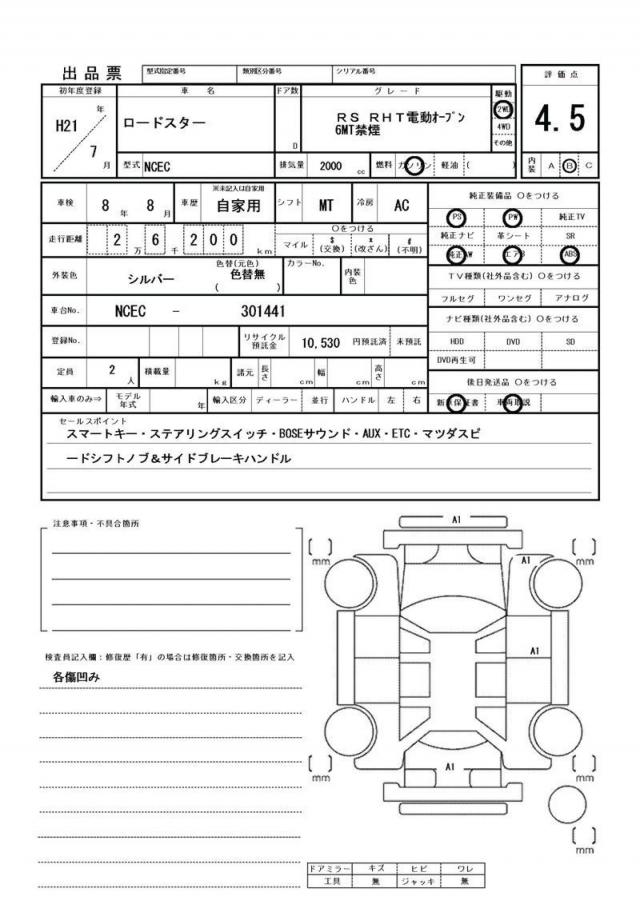 出品票 型式指定番号 類別区分番号 シリアル番号
初年度登録 車名 ドア数 グレード 駆動 評価点
H21 年 7 月
ロードスター
D
RS RHT電動オープン
6MT禁煙
2WD
4WD
その他
4.5
型式 NCEC 排気量 2000 cc 燃料 ガソリン 軽油 ( ) 内装 A B C
車検 8 年 8 月 車歴 ※未記入は自家用 自家用 シフト MT 冷房 AC
純正装備品 ○をつける
走行距離 2 万 6 千 2 0 0 km
○をつける
マイル $ (交換) x (改ざん) # (不明)
PS PW 純正TV
純正ナビ 革シート SR
純正AW エアB ABS
外装色 シルバー 色替(元色) 色替無 ( ) カラーNo. 内装色
TV種類(社外品含む) ○をつける
フルセグ ワンセグ アナログ
車台No. NCEC - 301441
ナビ種類(社外品含む) ○をつける
登録No. リサイクル預託金 10,530 円預託済 未預託
HDD DVD SD
DVD再生可
定員 2 人 積載量 kg 諸元 長さ cm 幅 cm 高さ cm
後日発送品 ○をつける
輸入車のみ⇒ モデル年式 年 輸入区分 ディーラー 並行 ハンドル 左 右
新車保証書 車両取説
セールスポイント
スマートキー・ステアリングスイッチ・BOSEサウンド・AUX・ETC・マツダスピ
ードシフトノブ&サイドブレーキハンドル
注意事項・不具合箇所
A1
[ ] mm
[ ] mm
A1
A1
検査員記入欄:修復歴「有」の場合は修復箇所・交換箇所を記入
各傷凹み
A1
[ ] mm
[ ] mm
[ ] mm
ドアミラー キズ ヒビ ワレ
工具 無 ジャッキ 無